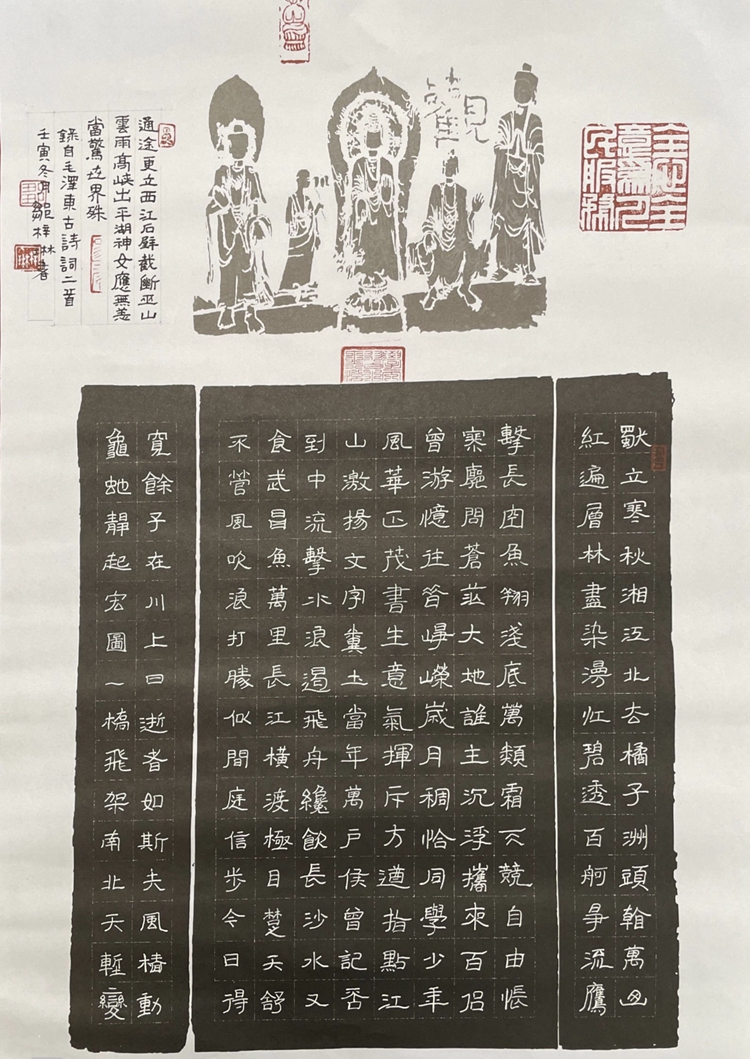 全心全
意為人
民服務
獨立寒秋湘江北去橘子洲頭看萬山
紅遍層林盡染漫江碧透百舸爭流鷹
擊長空魚翔淺底萬類霜天競自由悵
寥廓問蒼茫大地誰主沉浮攜來百侶
曾游憶往昔崢嶸歲月稠恰同學少年
風華正茂書生意氣揮斥方遒指點江
山激揚文字糞土當年萬戶侯曾記否
到中流擊水浪遏飛舟纔飲長沙水又
食武昌魚萬里長江橫渡極目楚天舒
不管風吹浪打勝似閒庭信步今日得
寬餘子在川上曰逝者如斯夫風檣動
龜蛇靜起宏圖一橋飛架南北天塹變
通途更立西江石壁截斷巫山
雲雨高峽出平湖神女應無恙
當驚世界殊
錄自毛澤東古詩詞二首
壬寅冬月鄒林書